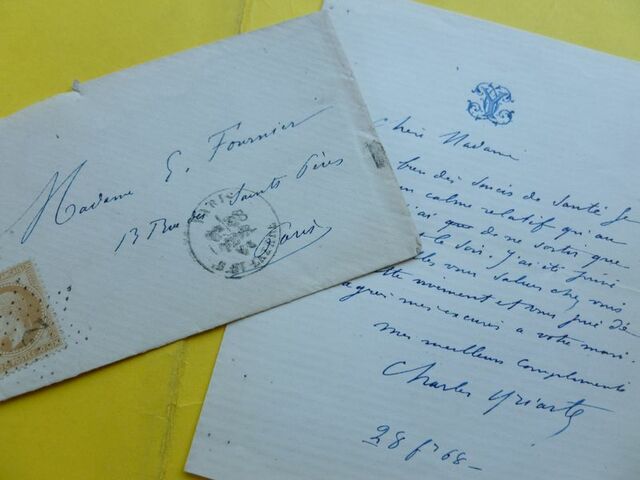 Madame E. Fournier
13 Rue des Saints Pères
Paris
PARIS
R. ST LAZARE
Chère Madame
bien des soucis de santé je
un calme relatif qu'au
de ne sortir que
le soir. J'ai été privé
vous saluer chez vous
moment et vous prie de
agréer mes excuses a votre mari.
mes meilleurs compliments
Charles Yriarte
28 fr 68